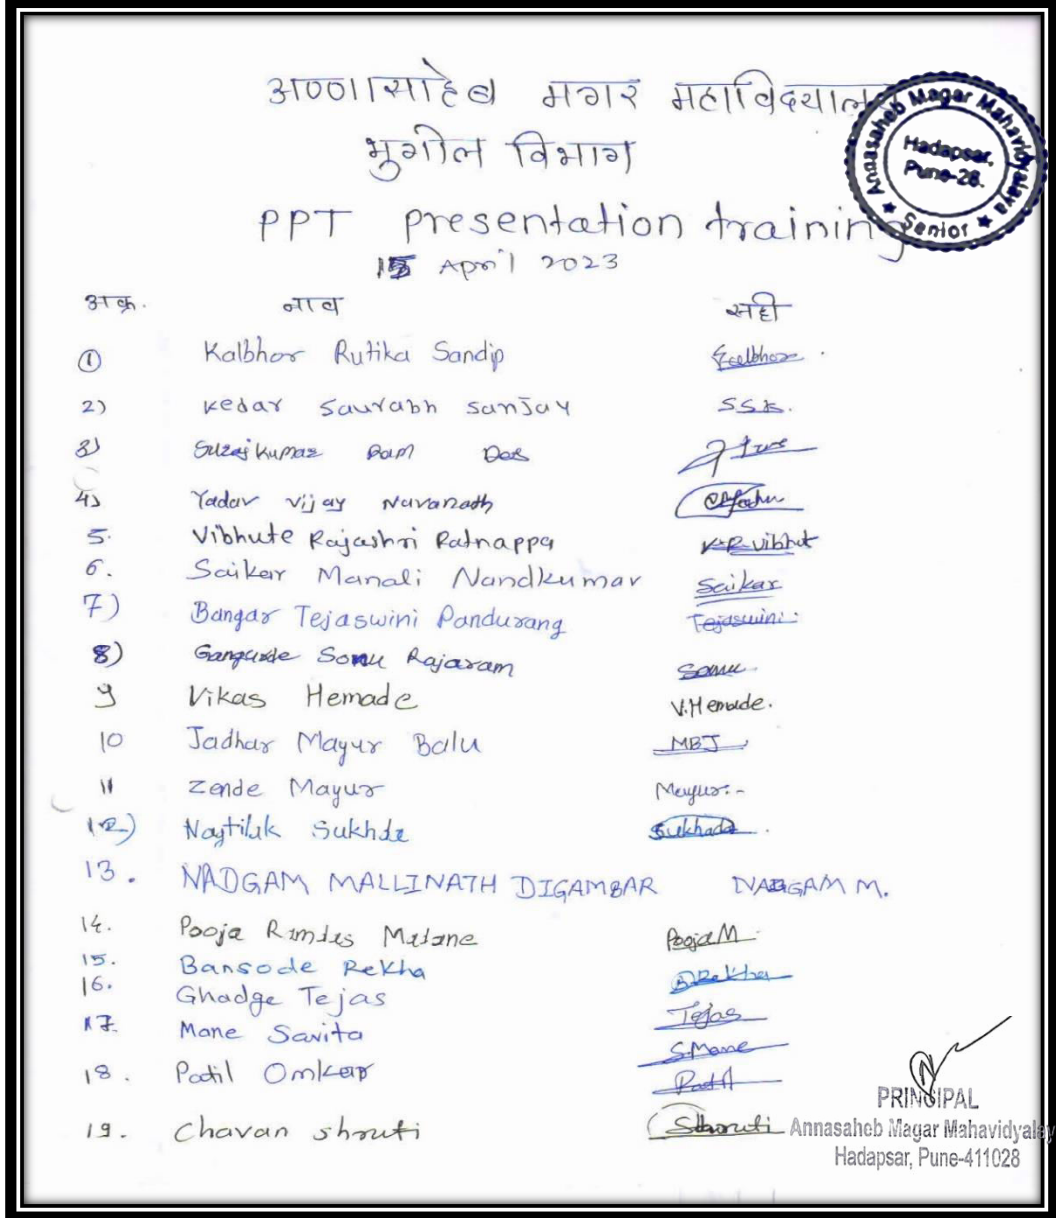 अण्णासाहेब मगर महाविद्यालय
भुगोल विभाग
PPT presentation training
15 April 2023
Annasaheb Magar Mahavidyalaya
Hadapsar,
Pune-28.
★ Senior ★
अ.क्र. नाव सही
① Kalbhor Rutika Sandip Rkalbhor
2) Kedar Saurabh Sanjay S.S.K.
3) Surajkumar Ram Das
4) Yadav Vijay Navanath
5. Vibhute Rajashri Ratnappa V.R.Vibhut
6. Saikar Manali Nandkumar Saikar
7) Bangar Tejaswini Pandurang Tejaswini
8) Gangurde Sonu Rajaram Sonu
9 Vikas Hemade V.Hemade.
10 Jadhar Mayur Balu MBJ
11 Zende Mayur Mayur:-
12) Naytilak Sukhde Sukhada
13. NADGAM MALLINATH DIGAMBAR NADGAM M.
14. Pooja Ramdas Malane PoojaM
15. Bansode Rekha B.Rekha
16. Ghadge Tejas Tejas
17. Mane Savita S.Mane
18. Patil Omkar Patil
19. Chavan Shruti Shruti
PRINCIPAL
Annasaheb Magar Mahavidyalay
Hadapsar, Pune-411028